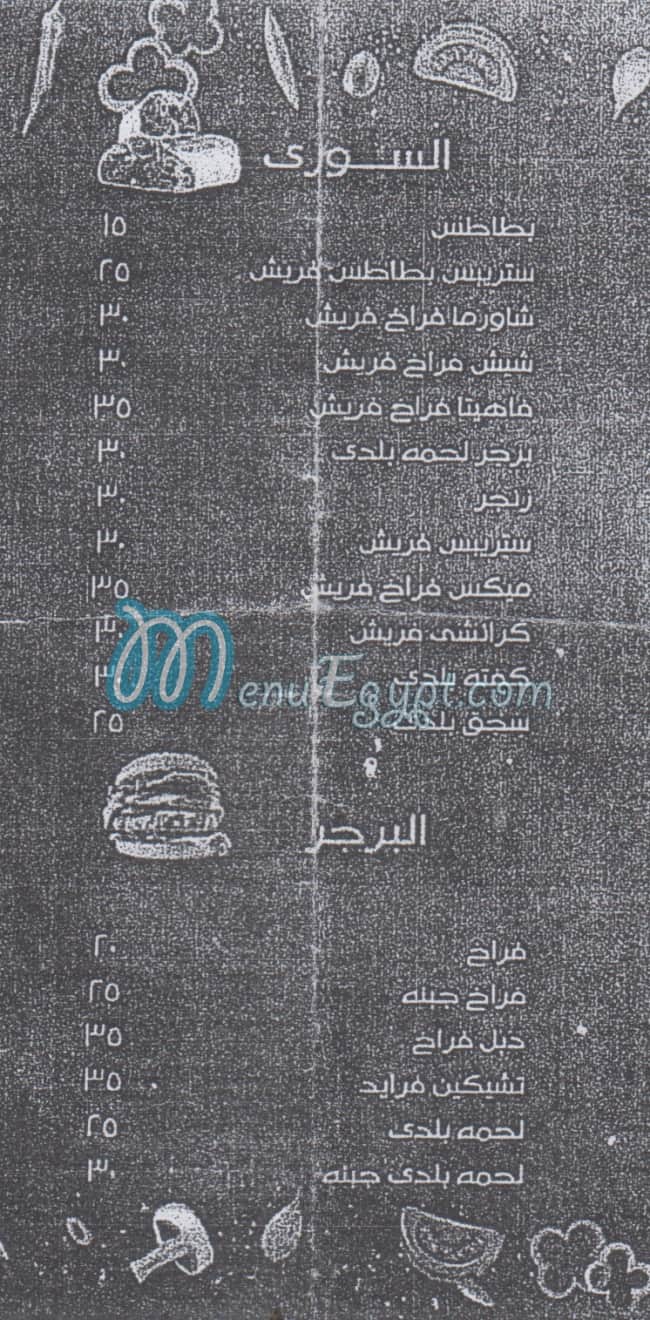 السورى
بطاطس ١٥
ستريبس بطاطس فريش ٢٥
شاورما فراخ فريش ٣٠
شيش فراخ فريش ٣٠
فاهيتا فراخ فريش ٣٥
برجر لحمه بلدى ٣٠
زنجر ٣٠
ستريبس فريش ٣٠
ميكس فراخ فريش ٣٥
كرانشى فريش ٣٠
كفته بلدى ٣٠
MenuEgypt.com
سجق بلدى ٢٥
البرجر
فراخ ٢٠
فراخ جبنه ٢٥
دبل فراخ ٣٥
تشيكين فرايد ٣٥
لحمه بلدى ٢٥
لحمه بلدى جبنه ٣٠